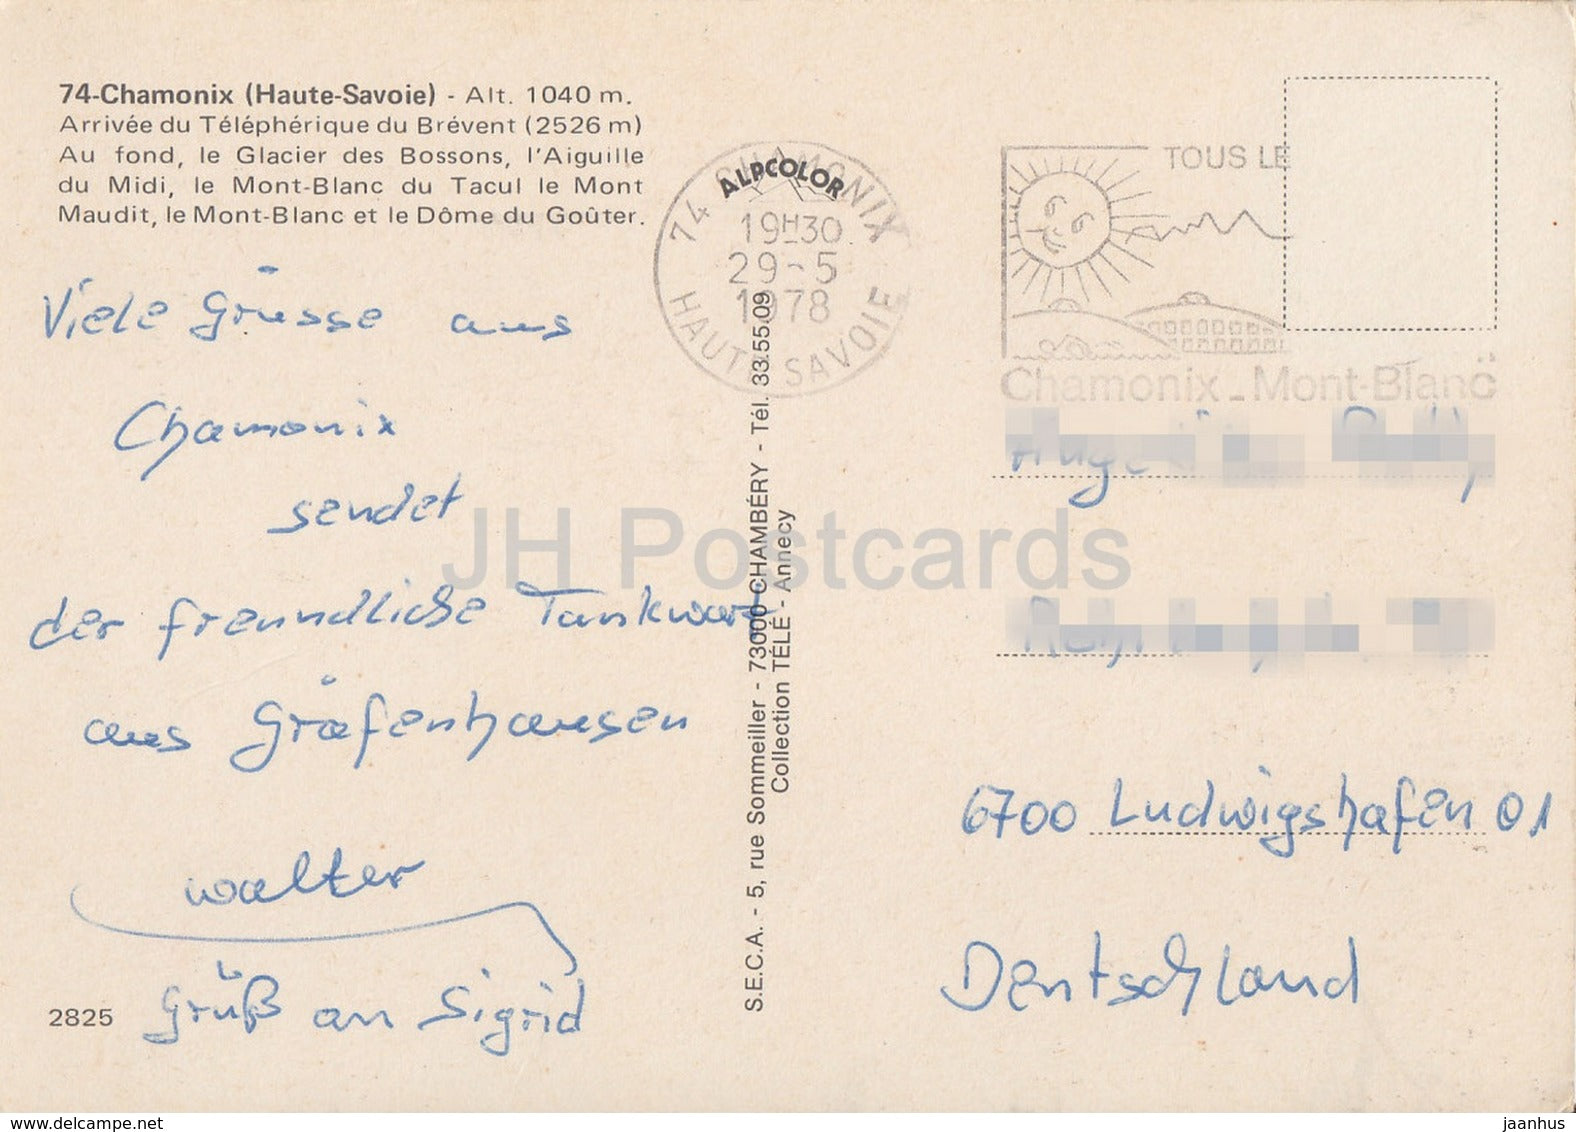 74-Chamonix (Haute-Savoie) - Alt. 1040 m.
Arrivée du Téléphérique du Brévent (2526 m)
Au fond, le Glacier des Bossons, l'Aiguille
du Midi, le Mont-Blanc du Tacul le Mont
Maudit, le Mont-Blanc et le Dôme du Goûter.
Viele Grüsse aus
Chamonix
sendet
der freundliche Tankwart
aus Gräfenhausen
Walter
Grüß an Sigrid
2825
ALPCOLOR
74 CHAMONIX
19H30
29-5
1978
HAUTE SAVOIE
S.E.C.A. - 5, rue Sommeiller - 73000 CHAMBÉRY - Tél. 33.55.09
Collection TÉLÉ - Annecy
TOUS LE
Chamonix_Mont-Blanc
6700 Ludwigshafen 01
Deutschland
JH Postcards
www.delcampe.net
jaanhus